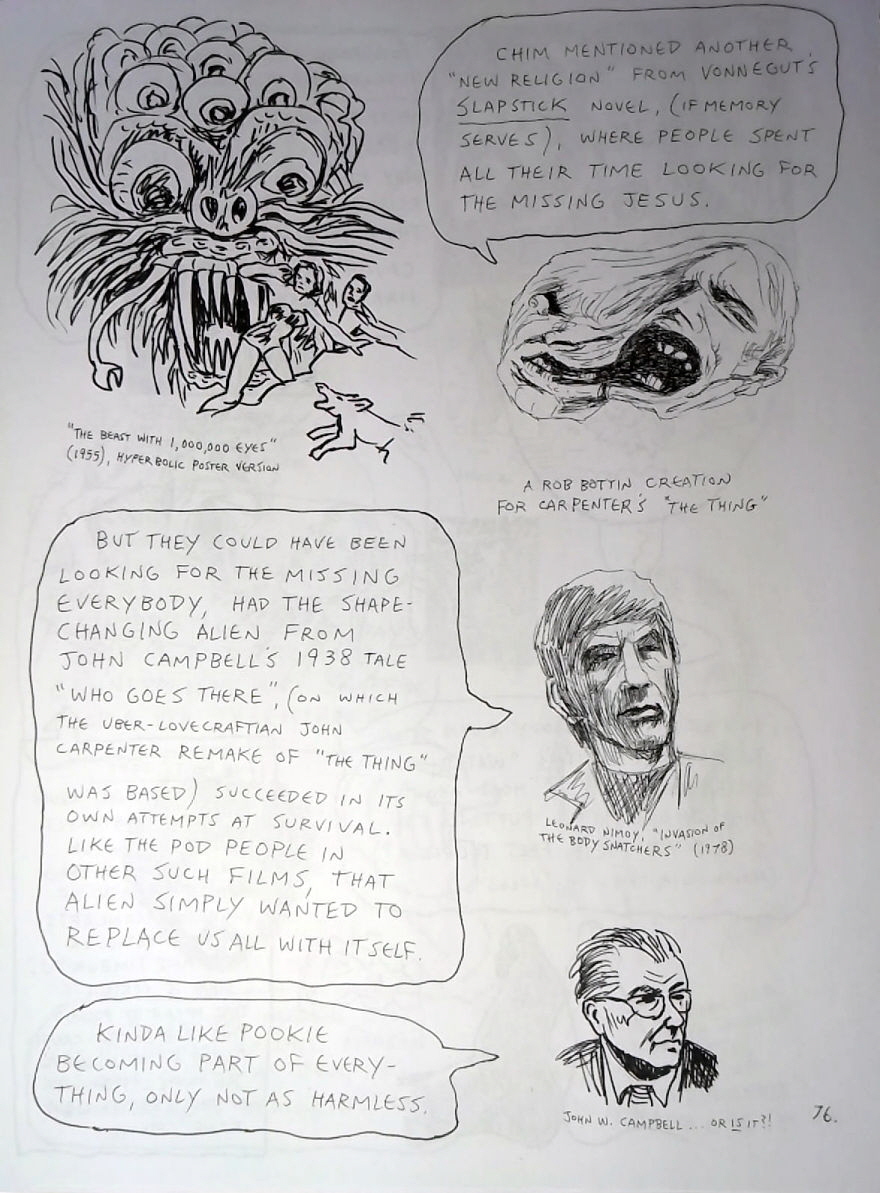 CHIM MENTIONED ANOTHER
"NEW RELIGION" FROM VONNEGUT'S
SLAPSTICK NOVEL, (IF MEMORY
SERVES), WHERE PEOPLE SPENT
ALL THEIR TIME LOOKING FOR
THE MISSING JESUS.
"THE BEAST WITH 1,000,000 EYES"
(1955), HYPERBOLIC POSTER VERSION
A ROB BOTTIN CREATION
FOR CARPENTER'S "THE THING"
BUT THEY COULD HAVE BEEN
LOOKING FOR THE MISSING
EVERYBODY, HAD THE SHAPE-
CHANGING ALIEN FROM
JOHN CAMPBELL'S 1938 TALE
"WHO GOES THERE", (ON WHICH
THE UBER-LOVECRAFTIAN JOHN
CARPENTER REMAKE OF "THE THING"
WAS BASED) SUCCEEDED IN ITS
OWN ATTEMPTS AT SURVIVAL.
LIKE THE POD PEOPLE IN
OTHER SUCH FILMS, THAT
ALIEN SIMPLY WANTED TO
REPLACE US ALL WITH ITSELF.
LEONARD NIMOY, "INVASION OF
THE BODY SNATCHERS" (1978)
KINDA LIKE POOKIE
BECOMING PART OF EVERY-
THING, ONLY NOT AS HARMLESS.
JOHN W. CAMPBELL... OR IS IT?!
76.